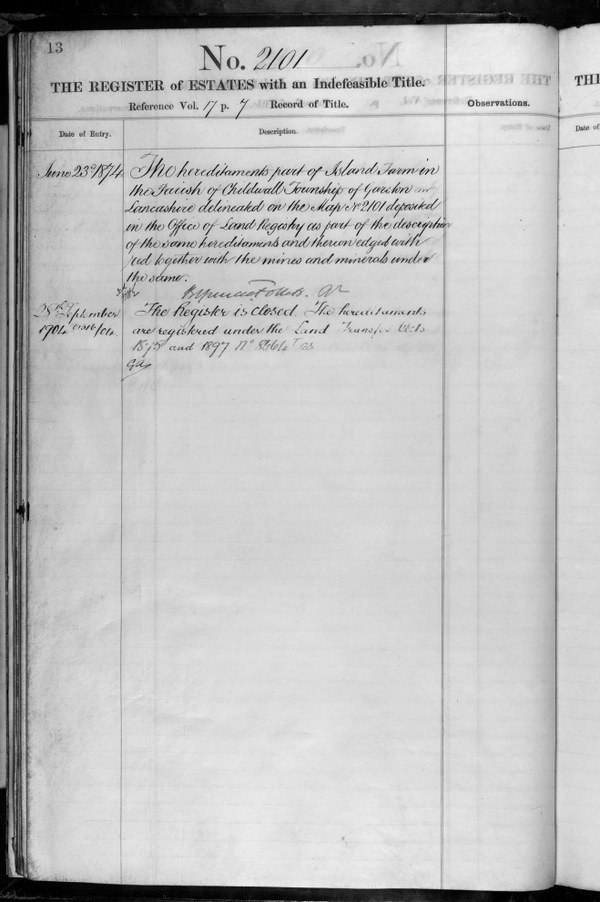 13
No. 2101
THE REGISTER of ESTATES with an Indefeasible Title.
Reference Vol. 17 p. 7 Record of Title.
Observations.
Date of Entry.
Description.
June 23d 1874
The hereditaments part of Island Farm in
the Parish of Childwall Township of Garston
Lancashire delineated on the Map No 2101 deposited
in the Office of Land Registry as part of the description
of the same hereditaments and thereon edged with
red together with the mines and minerals under
the same.
28th September
1904
The Register is closed. The hereditaments
are registered under the Land Transfer Acts
1875 and 1897 No
THI
Date of